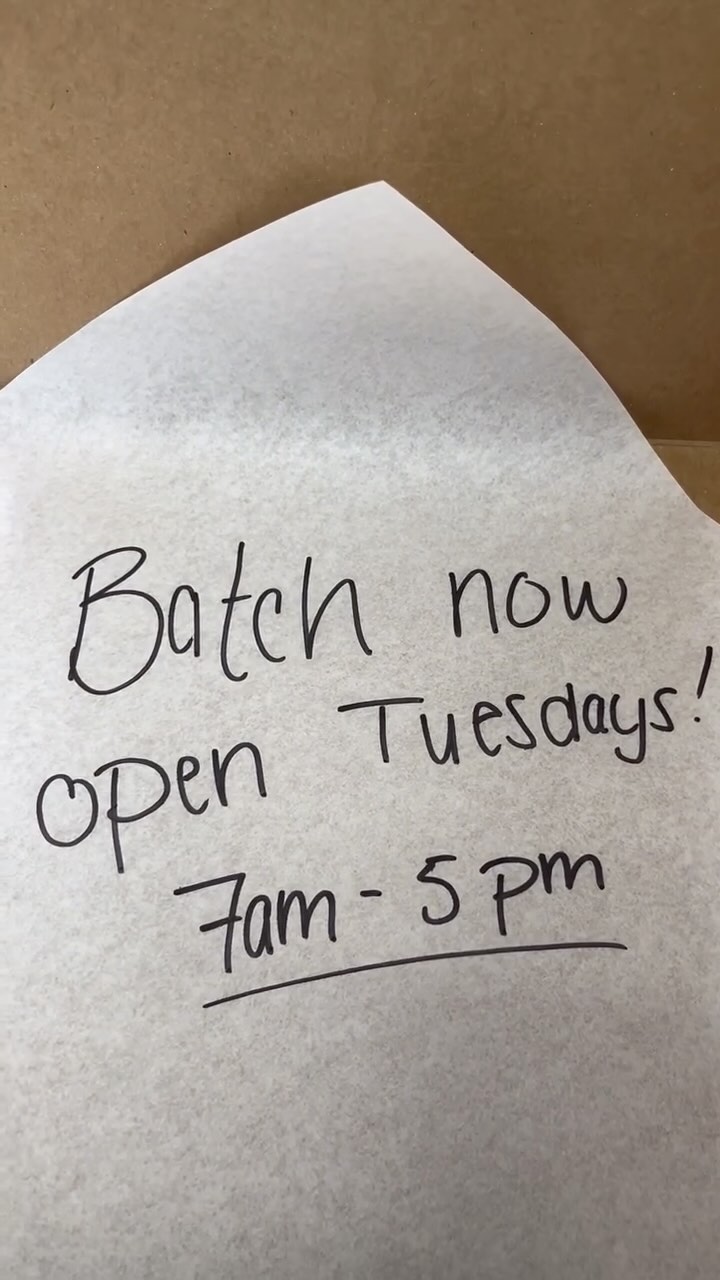 Batch now
open Tuesdays!
7am - 5pm